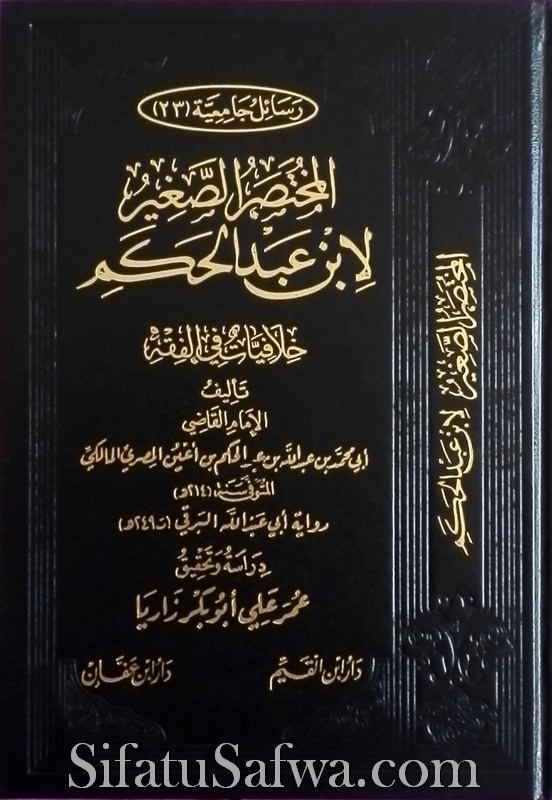 رسائل جامعية (٢٣)
المختصر الصغير
لابن عبد الحكم
خلافيات في الفقه
تأليف
الإمام القاضي
أبي محمد بن عبد الله بن عبد الحكم بن أعين المصري المالكي
المتوفى سنة (٢١٤هـ)
رواية أبي عبد الله البرقي (ت ٢٤٩هـ)
دراسة وتحقيق
عمر علي أبو بكر زاريا
دار ابن القيم
دار ابن عفان
المختصر الصغير لابن عبد الحكم
SifatuSafwa.com